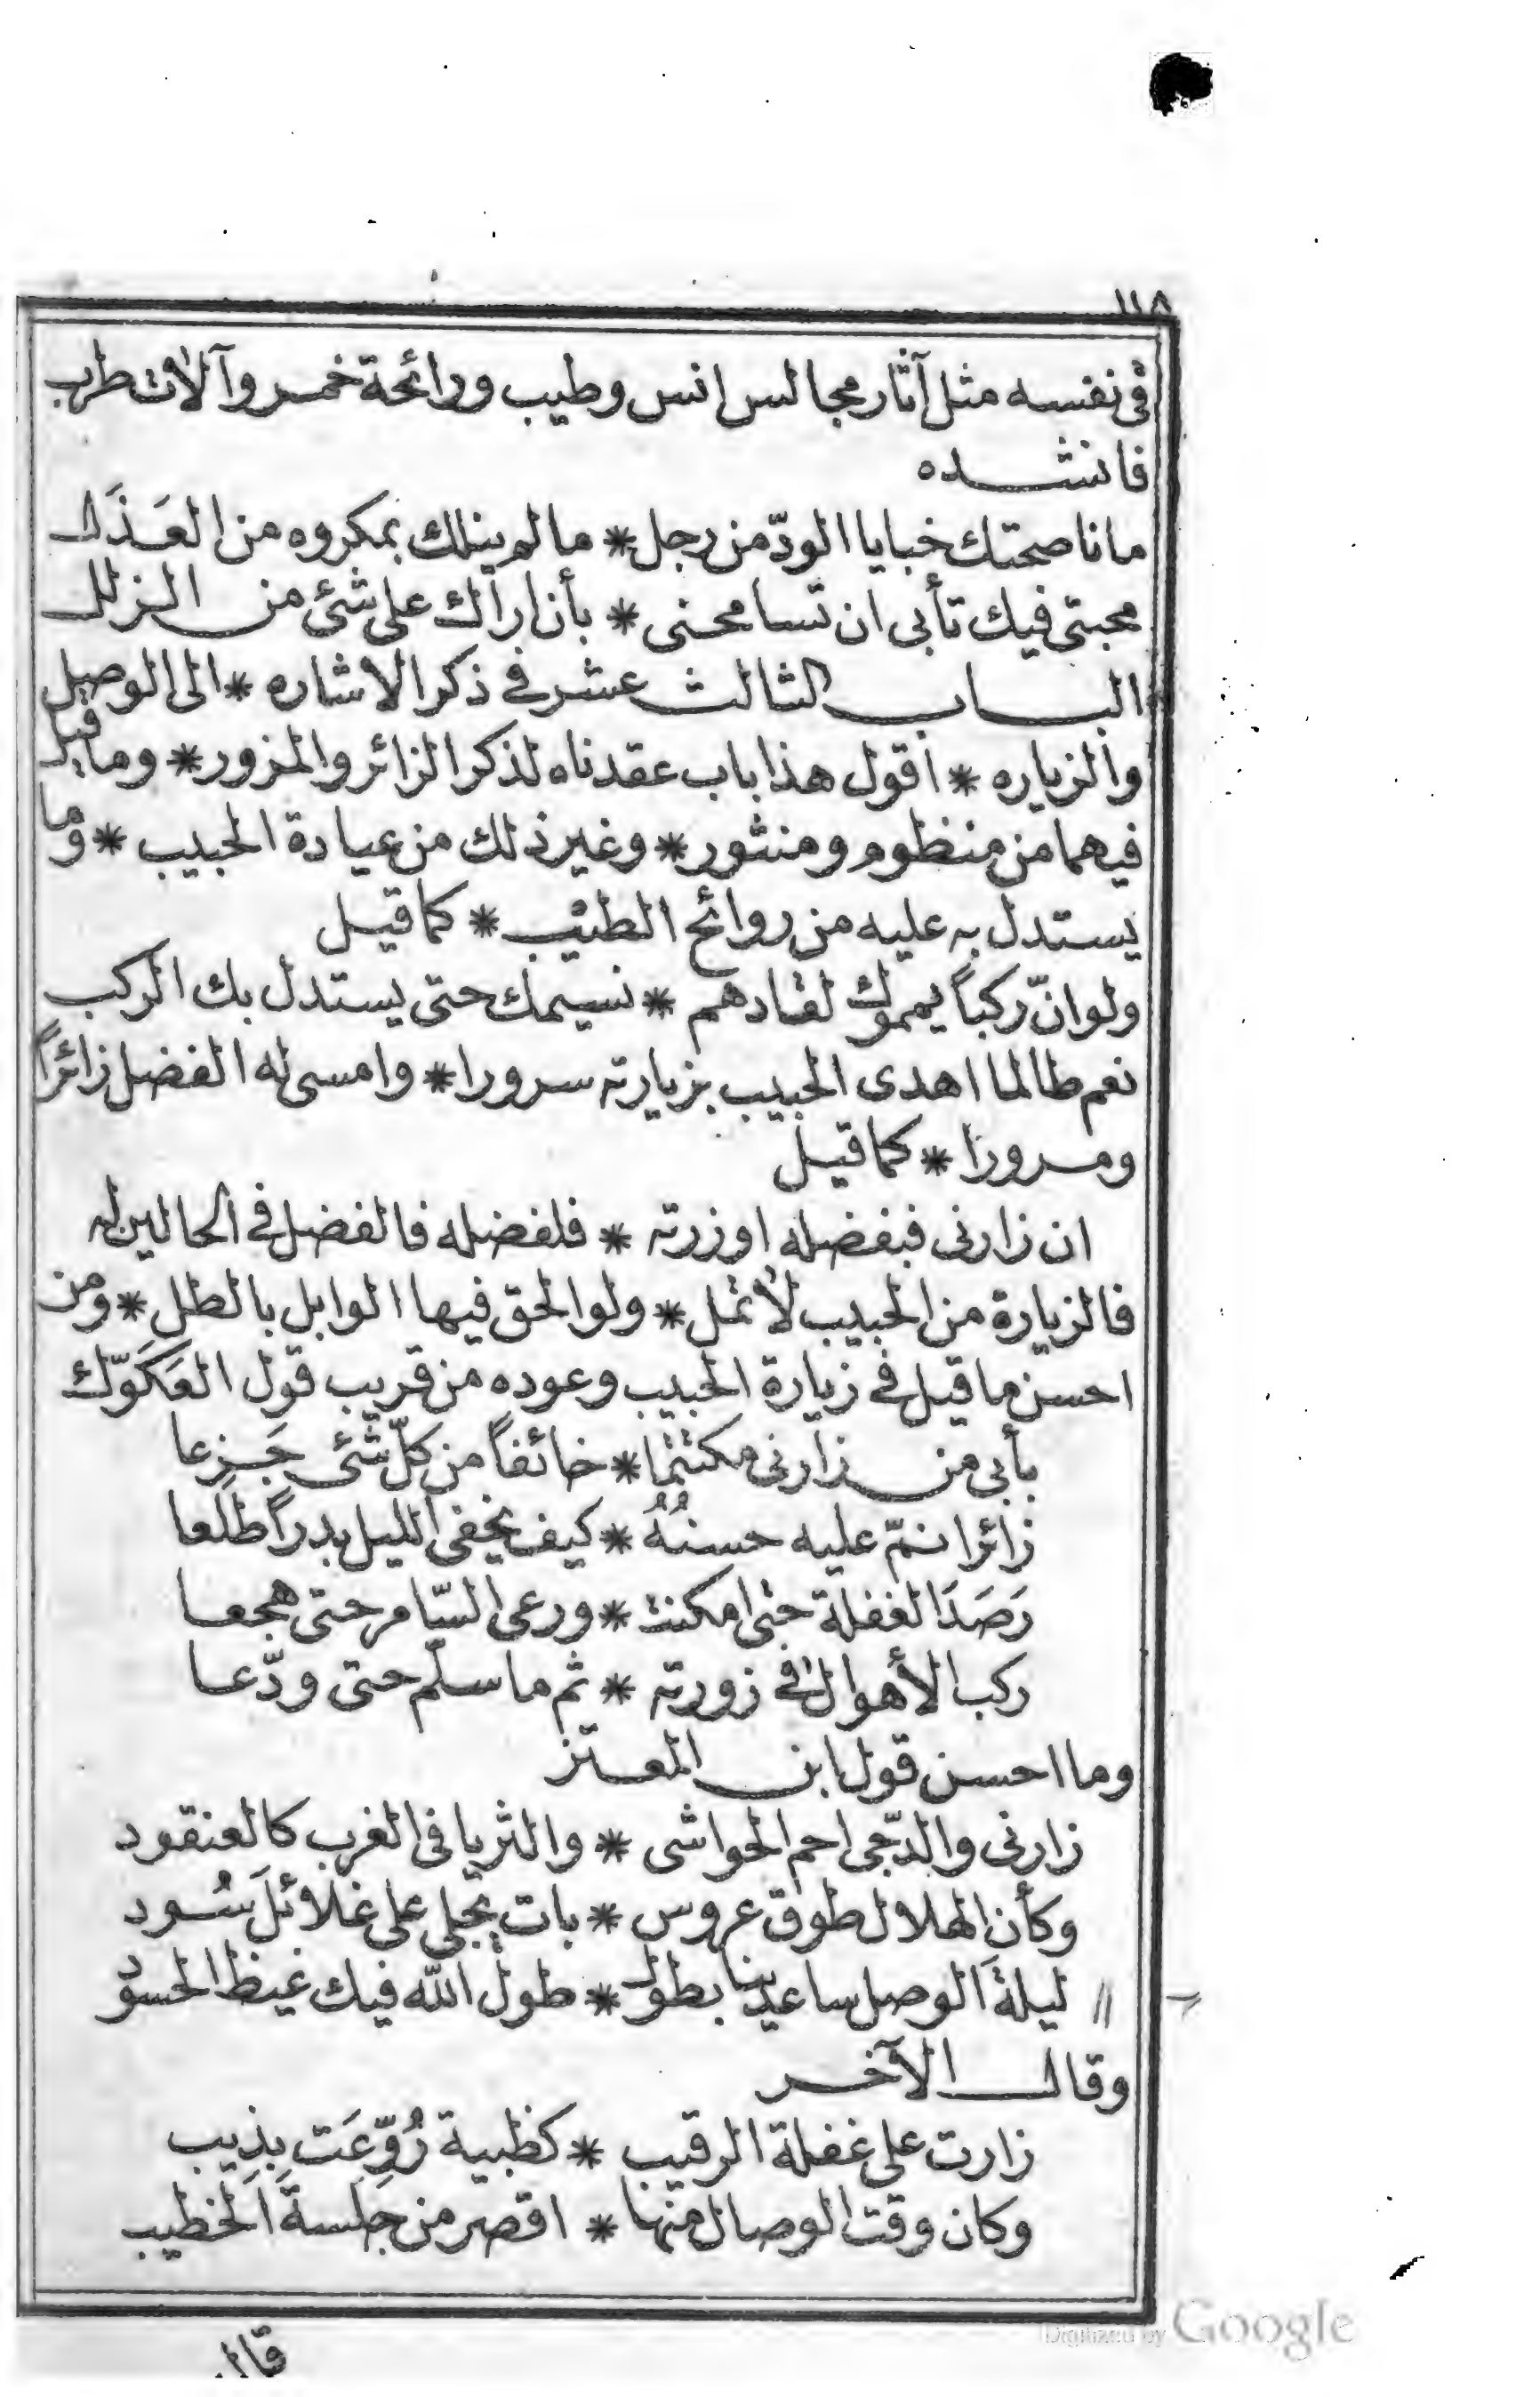 ١١٨
فى نفسه مثل آثار مجالس انس وطيب ورائحة خمر وآلات طرب
فانشده
ما ناصحتك خبايا الودّ من رجل * ما لم ينلك بمكروه من العَذَل
محبتى فيك تأبى ان تسامحنى * بأن اراك على شئ من الزلل
الباب الثالث عشر في ذكر الاشاره * الى الوصل
والزياره * اقول هذا باب عقدناه لذكر الزائر والمزور * وما قيل
فيهما من منظوم ومنثور * وغير ذلك من عيادة الحبيب * وما
يستدل به عليه من روائح الطيب * كما قيل
ولو انّ ركباً يمموك لقادهم * نسيمك حتى يستدل بك الركب
نعم طالما اهدى الحبيب بزيارته سرورا * وامسى له الفضل زائراً
ومزورا * كما قيل
ان زارنى فبفضله او زرته * فلفضله فالفضل في الحالين له
فالزيارة من الحبيب لا تمل * ولو الحق فيها الوابل بالطل * ومن
احسن ما قيل في زيارة الحبيب وعوده من قريب قول العَكَوّك
بأبى من زارنى مكتتما * خائفاً من كلّ شئ جَزِعا
زائرا نمّ عليه حسنُهُ * كيف يخفى الليل بدراً طلعا
رَصَدَ الغفلة حتى امكنت * ورعى السّامر حتى هجعا
ركب الأهوال في زورته * ثم ما سلّم حتى ودّعا
وما احسن قول ابن المعتز
زارنى والدّجى احم الحواشى * والثريا فى الغرب كالعنقود
وكأن الهلال طوق عروس * بات يجلى على غلائل سُود
ليلة الوصل ساعدينا بطول * طول الله فيك غيظ الحسود
وقال الآخر
زارت على غفلة الرقيب * كظبية رُوِّعَت بذيب
وكان وقت الوصال منها * اقصر من جلسة الخطيب
قال
Digitized by Google